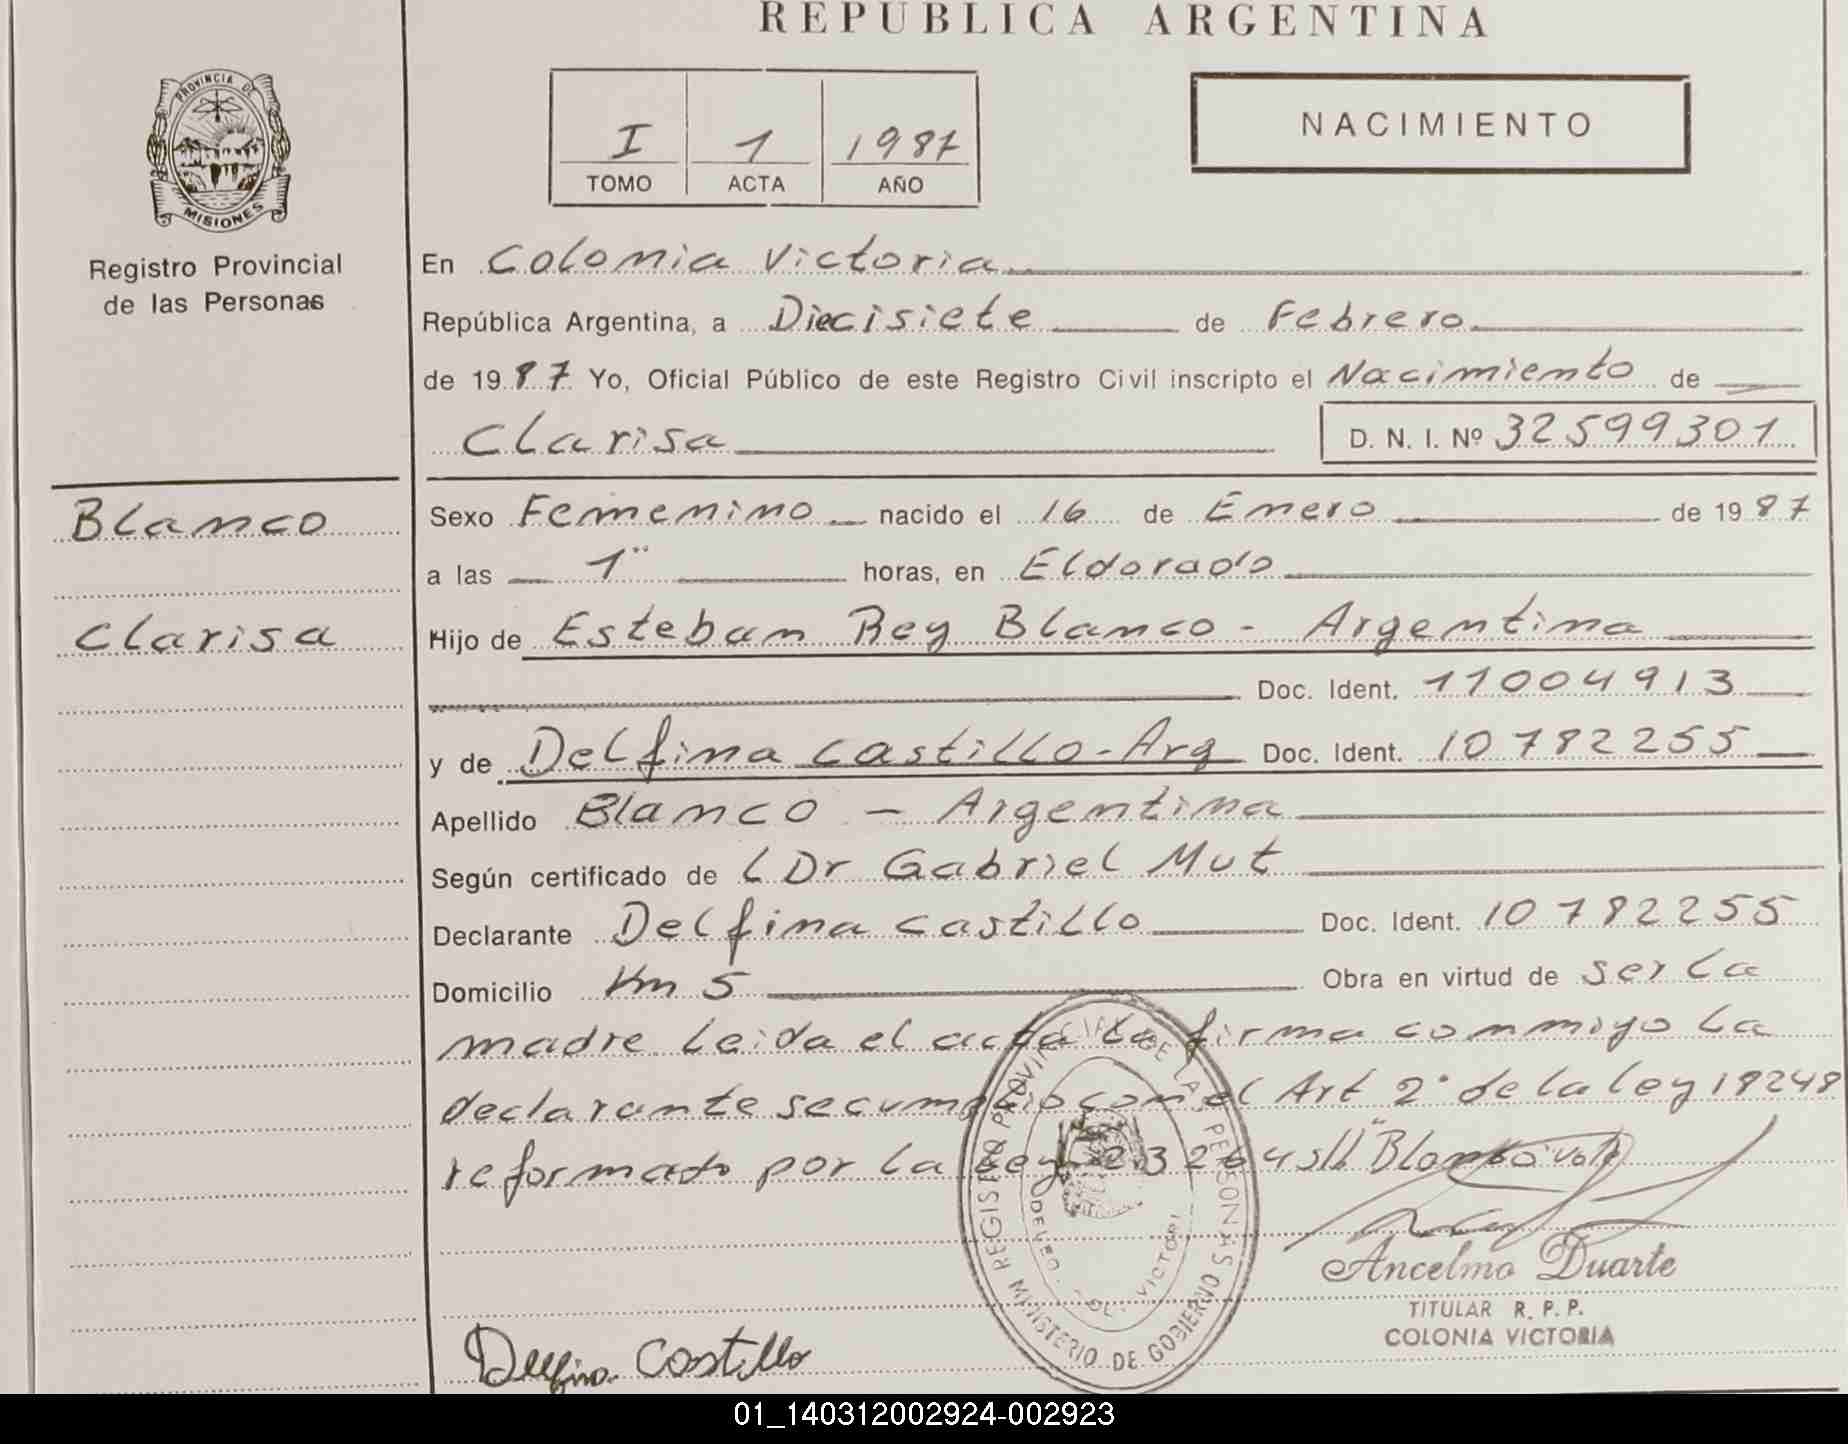 REPUBLICA ARGENTINA
PROVINCIA DE
MISIONES
Registro Provincial
de las Personas
I 1 1987
TOMO ACTA AÑO
NACIMIENTO
En Colonia Victoria
República Argentina, a Diecisiete de Febrero
de 1987 Yo, Oficial Público de este Registro Civil inscripto el Nacimiento de
Clarisa D. N. I. Nº 32599301
Blanco
Clarisa
Sexo Femenino nacido el 16 de Enero de 1987
a las 1 horas, en Eldorado
Hijo de Esteban Rey Blanco - Argentina
Doc. Ident. 11004913
y de Delfina Castillo - Arg Doc. Ident. 10782255
Apellido Blanco - Argentina
Según certificado de Dr Gabriel Mut
Declarante Delfina Castillo Doc. Ident. 10782255
Domicilio Km 5 Obra en virtud de ser la
madre Leida el acta la firma conmigo la
declarante se cumplio con el Art 2° de la ley 18248
reformado por la Ley 23264 s/l "Blanco" vale
REGISTRO PROVINCIAL DE LAS PERSONAS
MINISTERIO DE GOBIERNO
Ancelmo Duarte
TITULAR R. P. P.
COLONIA VICTORIA
Delfina Castillo
01_140312002924-002923